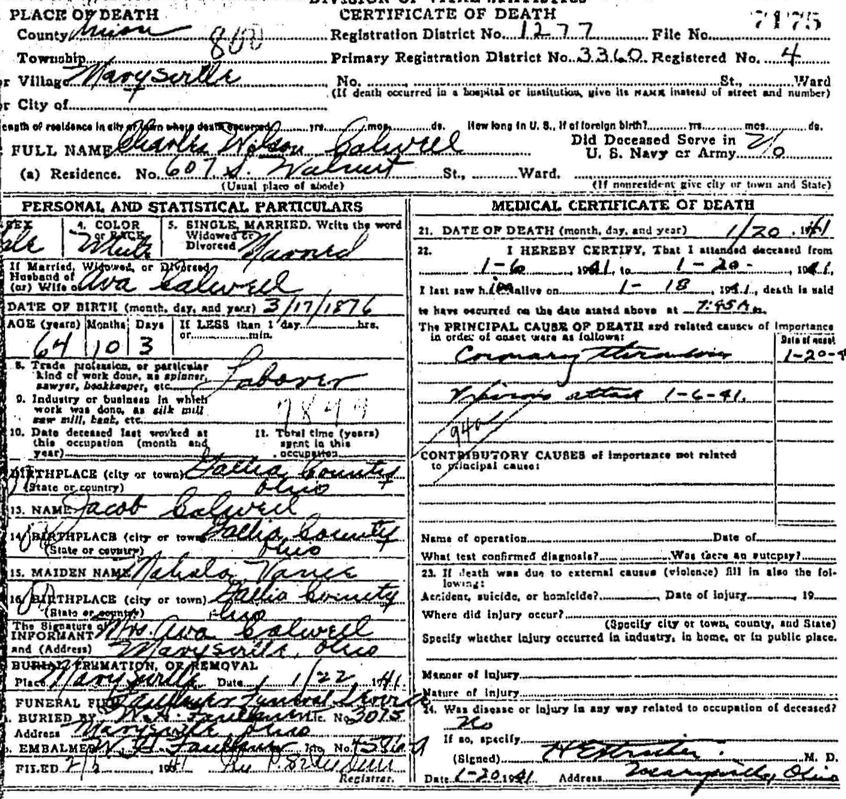 PLACE OF DEATH
CERTIFICATE OF DEATH
County Union 800
Registration District No. 1277 File No. 7175
Township
Primary Registration District No. 3360 Registered No. 4
or Village Marysville
No. St., Ward
(If death occurred in a hospital or institution, give its NAME instead of street and number)
or City of
ength of residence in city or town where death occurred yrs. mos. ds. How long in U. S., if of foreign birth? yrs. mos. ds.
FULL NAME Charles Wilson Calwell
Did Deceased Serve in U. S. Navy or Army No
(a) Residence. No. 607 S. Walnut St., Ward.
(Usual place of abode) (If nonresident give city or town and State)
PERSONAL AND STATISTICAL PARTICULARS
SEX
ale
4. COLOR or RACE
White
5. SINGLE, MARRIED. Write the word
Widowed or
Divorced Married
If Married, Widowed, or Divorced
Husband of
(or) Wife of Ava Calwell
DATE OF BIRTH (month, day, and year) 3/17/1876
AGE (years) Months Days If LESS than 1 day hrs.
or min.
64 10 3
8. Trade, profession, or particular
kind of work done, as spinner,
sawyer, bookkeeper, etc. Laborer
9. Industry or business in which
work was done, as silk mill
saw mill, bank, etc.
10. Date deceased last worked at
this occupation (month and
year)
11. Total time (years)
spent in this
occupation
BIRTHPLACE (city or town) Gallia County
(State or country) Ohio
13. NAME Jacob Calwell
14. BIRTHPLACE (city or town) Gallia County
(State or country) Ohio
15. MAIDEN NAME Vance
16. BIRTHPLACE (city or town) Gallia County
(State or country) Ohio
The Signature of
INFORMANT Mrs. Ava Calwell
and (Address) Marysville, Ohio
BURIAL, CREMATION, OR REMOVAL
Place Marysville Date 1/22 1941
FUNERAL FIRM Faulkner Funeral Service
BURIED BY W. H. Faulkner Lic. No. 3015
Address Marysville Ohio
EMBALMER W. H. Faulkner Lic. No.
FILED , 1941
Registrar.
MEDICAL CERTIFICATE OF DEATH
21. DATE OF DEATH (month, day, and year) 1/20 1941
22. I HEREBY CERTIFY, That I attended deceased from
1-6 1941, to 1-20- 1941.
I last saw him alive on 1-18 1941, death is said
to have occurred on the date stated above at 7:45 A m.
The PRINCIPAL CAUSE OF DEATH and related causes of importance
in order of onset were as follows:
Date of onset
Coronary thrombosis 1-20-4
attack 1-6-41.
94a
CONTRIBUTORY CAUSES of importance not related
to principal cause:
Name of operation Date of
What test confirmed diagnosis? Was there an autopsy?
23. If death was due to external causes (violence) fill in also the fol-
lowing:
Accident, suicide, or homicide? Date of injury , 19
Where did injury occur?
(Specify city or town, county, and State)
Specify whether injury occurred in industry, in home, or in public place.
Manner of injury
Nature of injury
24. Was disease or injury in any way related to occupation of deceased?
No
If so, specify
(Signed) M. D.
Date 1-20 1941 Address Marysville, Ohio